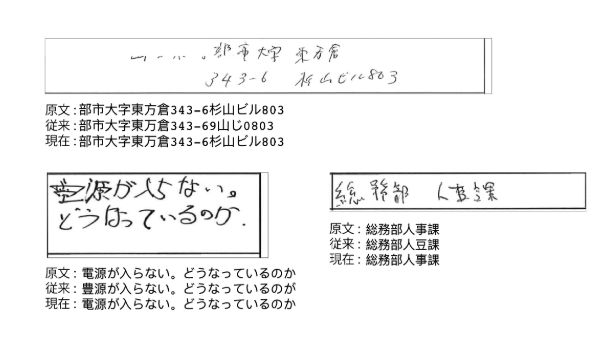 部市大字東方倉
343-6 杉山ビル803
原文:部市大字東万倉343-6杉山ビル803
従来:部市大字東万倉343-69山じ0803
現在:部市大字東万倉343-6杉山ビル803
電源が入らない。
どうなっているのか.
原文:電源が入らない。どうなっているのか
従来:豊源が入らない。どうなっているのが
現在:電源が入らない。どうなっているのか
総務部 人事課
原文:総務部人事課
従来:総務部人豆課
現在:総務部人事課